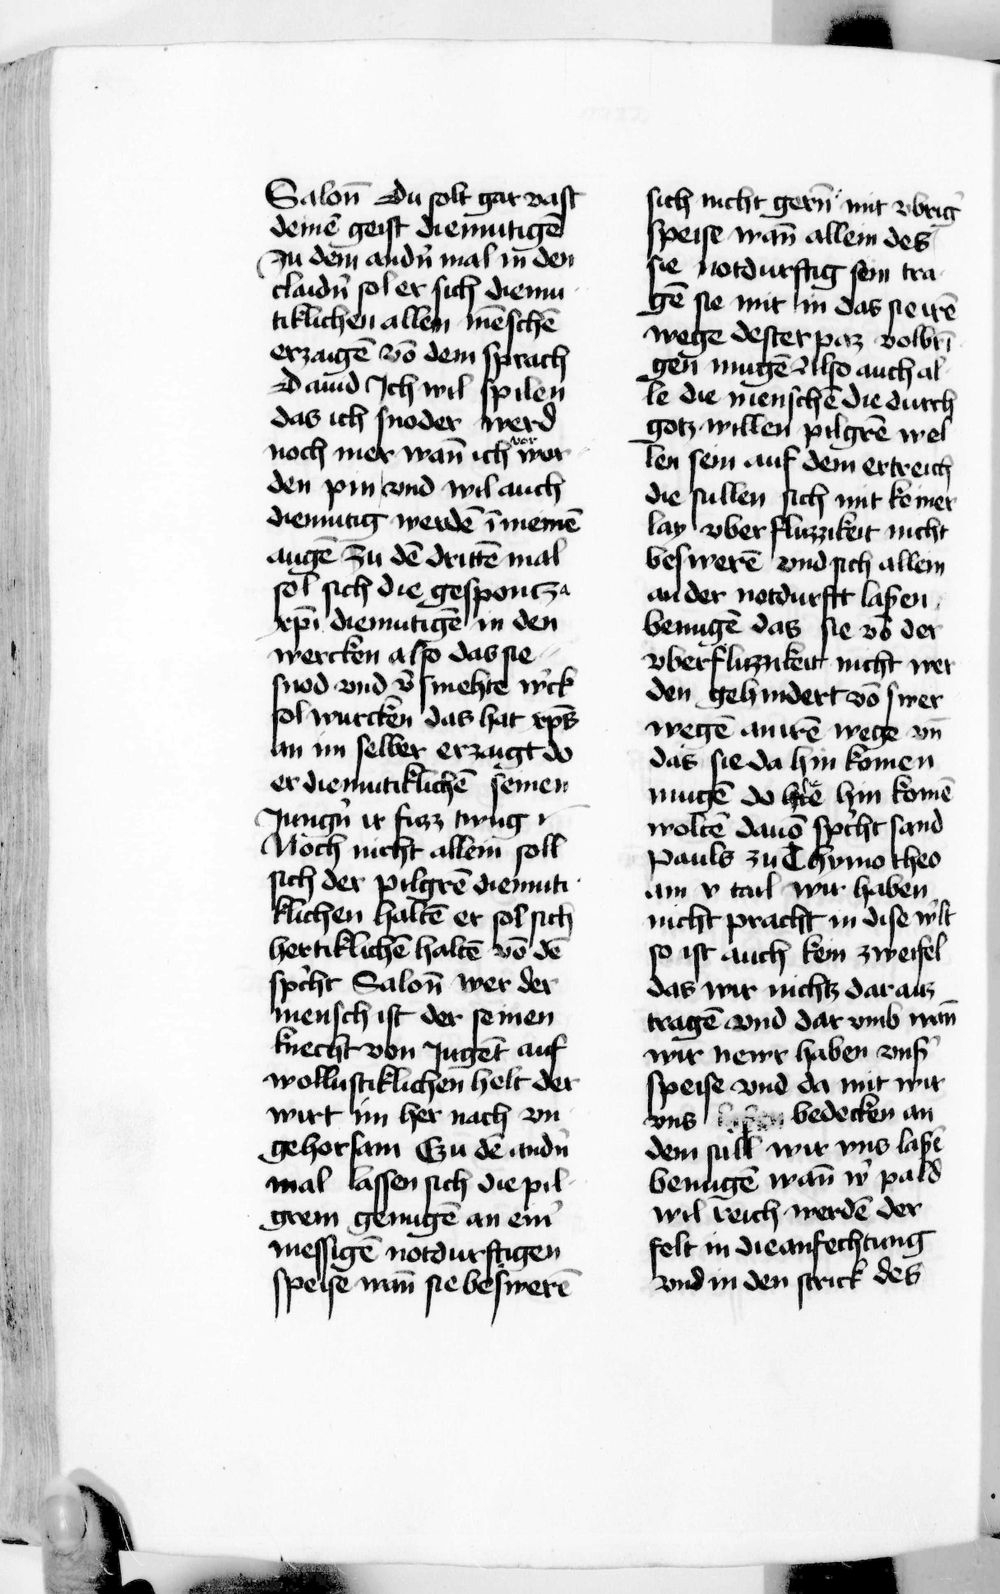 Salon̄ Du solt gar vast
deinē geist diemutigē
Zu dem andn̕ mal in den
claidn̕ sol er sich diemu
tiklichen allen mēschē
erzaigē vō dem sprach
Dauid Ich wil spilen
das ich snoder werd
noch mer wan̄ ich vor wor
den pin vnd wil auch
diemutig werdē ī meinē
augē Zu dē drittē mal
sol sich die gespontz
xp̄i diemutigē in den
wercken also das sie
snod vnd v̕smehte w̕ck
sol wurcken das hat xp̄s
an im selber erzaigt do
er diemutiklichē seinen
Jungn̕ ir fuzz twug
Noch nicht allein soll
sich der pilgrē diemuti
klichen haltē er sol sich
hertiklichē haltē vō dē
sp̕cht Salon̄ wer der
mensch ist der seinen
knecht von Jugēt auf
wollustiklichen helt der
wirt im her nach vn
gehorsam Czu dē andn̕
mal lassen sich die pil
grem genugē an ein̕
messigē notdurftigen
speise wan̄ sie beswerē
sich nicht gern̄ mit vbrig̕
speise wan̄ allein des
sie notdurftig sein tra
gē sie mit in das sie irē
wege dester paz volbrī
gen mugē Also auch al
le die menschē die durch
gotz willen pilgrē wel
len sein auf dem ertreich
die sullen sich mit keiner
lay vber fluzzikeit nicht
beswerē vnd sich allein
an der notdurft laſſen
benugē das sie vō der
vberfluzzikeit nicht wer
den gehindert vō swer
wegē an irē wege vn̄
das sie da hin komen
mugē do hin komē
woltē dauō sp̕cht sand
Pauls zu Thymotheo
am v tail wir haben
nicht pracht in dise w̕lt
so ist auch kein zweifel
das wir nichtz daraus
tragē vnd dar vmb wan̄
wir newr haben vnſ̕
speise vnd da mit wir
vns bedecken an
dem sull wir vns laſſē
benugē wan̄ w̕ pald
wil reich werdē der
felt in die anfechtung
vnd in den strick des